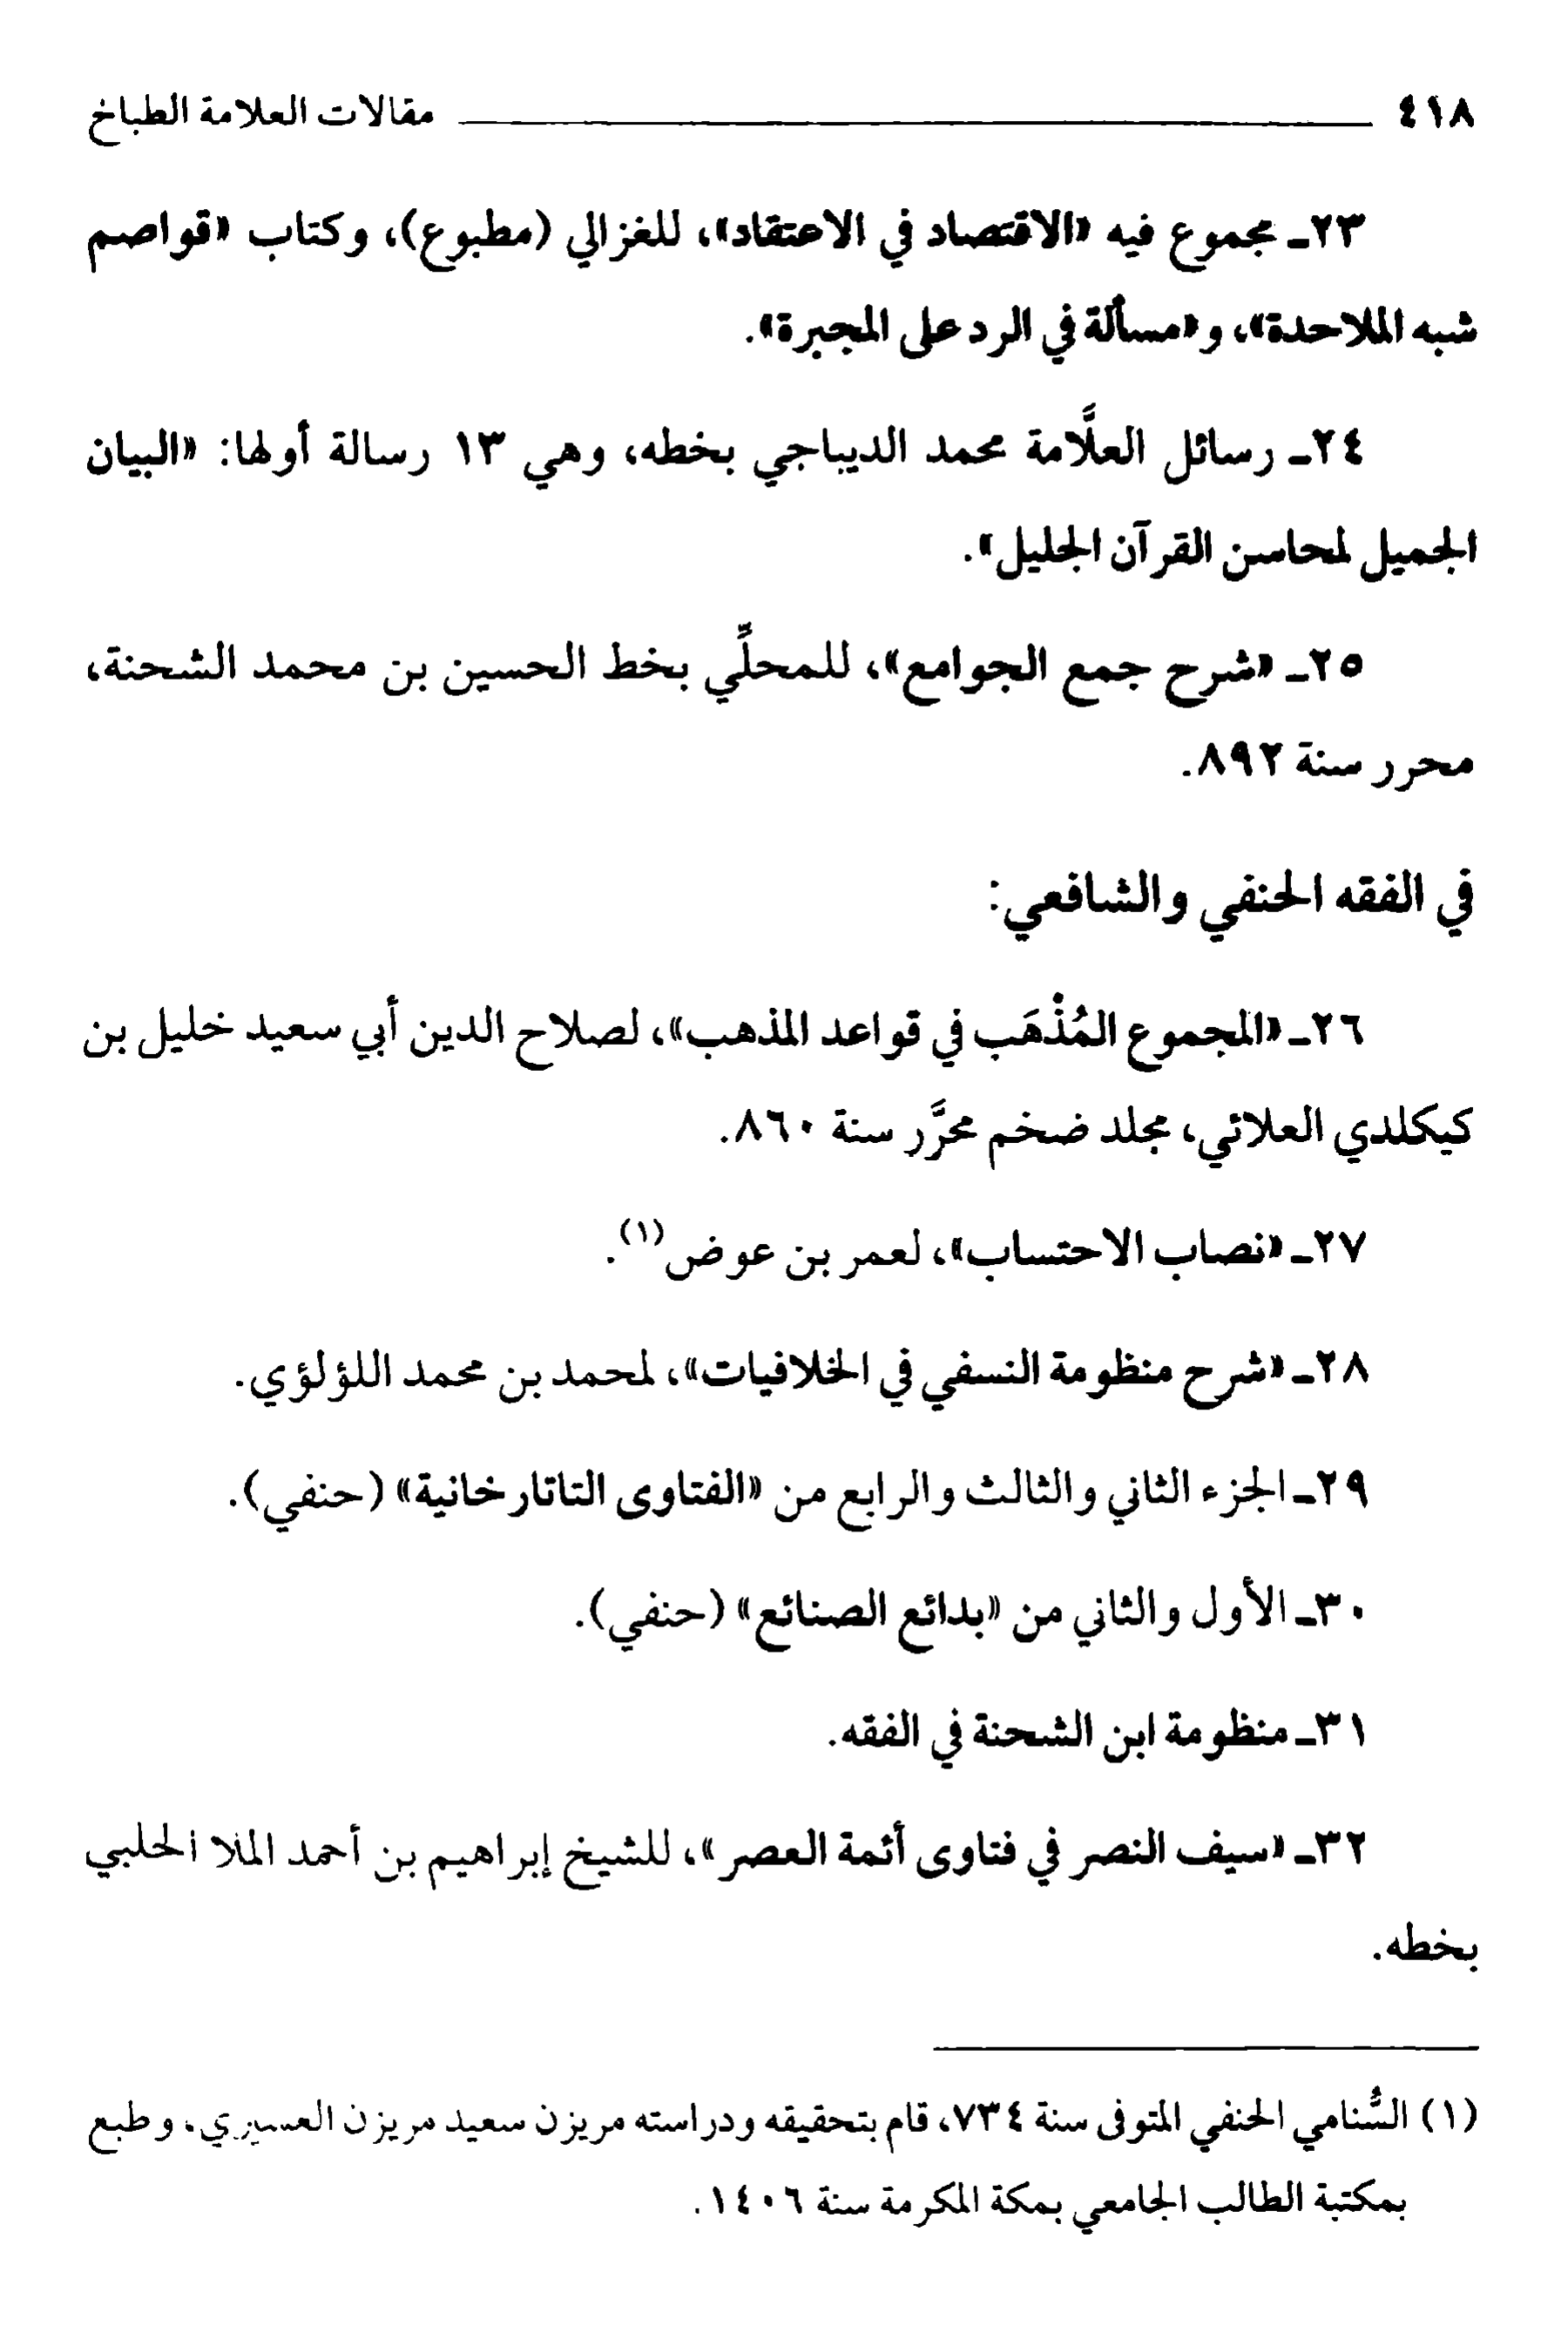 ٤١٨ مقالات العلامة الطباخ
٢٣ـ مجموع فيه «الاقتصاد في الاعتقاد»، للغزالي (مطبوع)، وكتاب «قواصم
شبه الملاحدة»، و«مسألة في الرد على المجبرة».
٢٤ـ رسائل العلَّامة محمد الديباجي بخطه، وهي ١٣ رسالة أولها: «البيان
الجميل لمحاسن القرآن الجليل».
٢٥ـ «شرح جمع الجوامع»، للمحلِّي بخط الحسين بن محمد الشحنة،
محرر سنة ٨٩٢.
في الفقه الحنفي والشافعي:
٢٦ـ «المجموع المُذْهَب في قواعد المذهب»، لصلاح الدين أبي سعيد خليل بن
كيكلدي العلائي، مجلد ضخم محرَّر سنة ٨٦٠.
٢٧ـ «نصاب الاحتساب»، لعمر بن عوض(١).
٢٨ـ «شرح منظومة النسفي في الخلافيات»، لمحمد بن محمد اللؤلؤي.
٢٩ـ الجزء الثاني والثالث والرابع من «الفتاوى التاتارخانية» (حنفي).
٣٠ـ الأول والثاني من «بدائع الصنائع» (حنفي).
٣١ـ منظومة ابن الشحنة في الفقه.
٣٢ـ «سيف النصر في فتاوى أئمة العصر»، للشيخ إبراهيم بن أحمد الملا الحلبي
بخطه.
(١) السُّنامي الحنفي المتوفى سنة ٧٣٤، قام بتحقيقه ودراسته مريزن سعيد مريزن العسيري، وطبع
بمكتبة الطالب الجامعي بمكة المكرمة سنة ١٤٠٦.